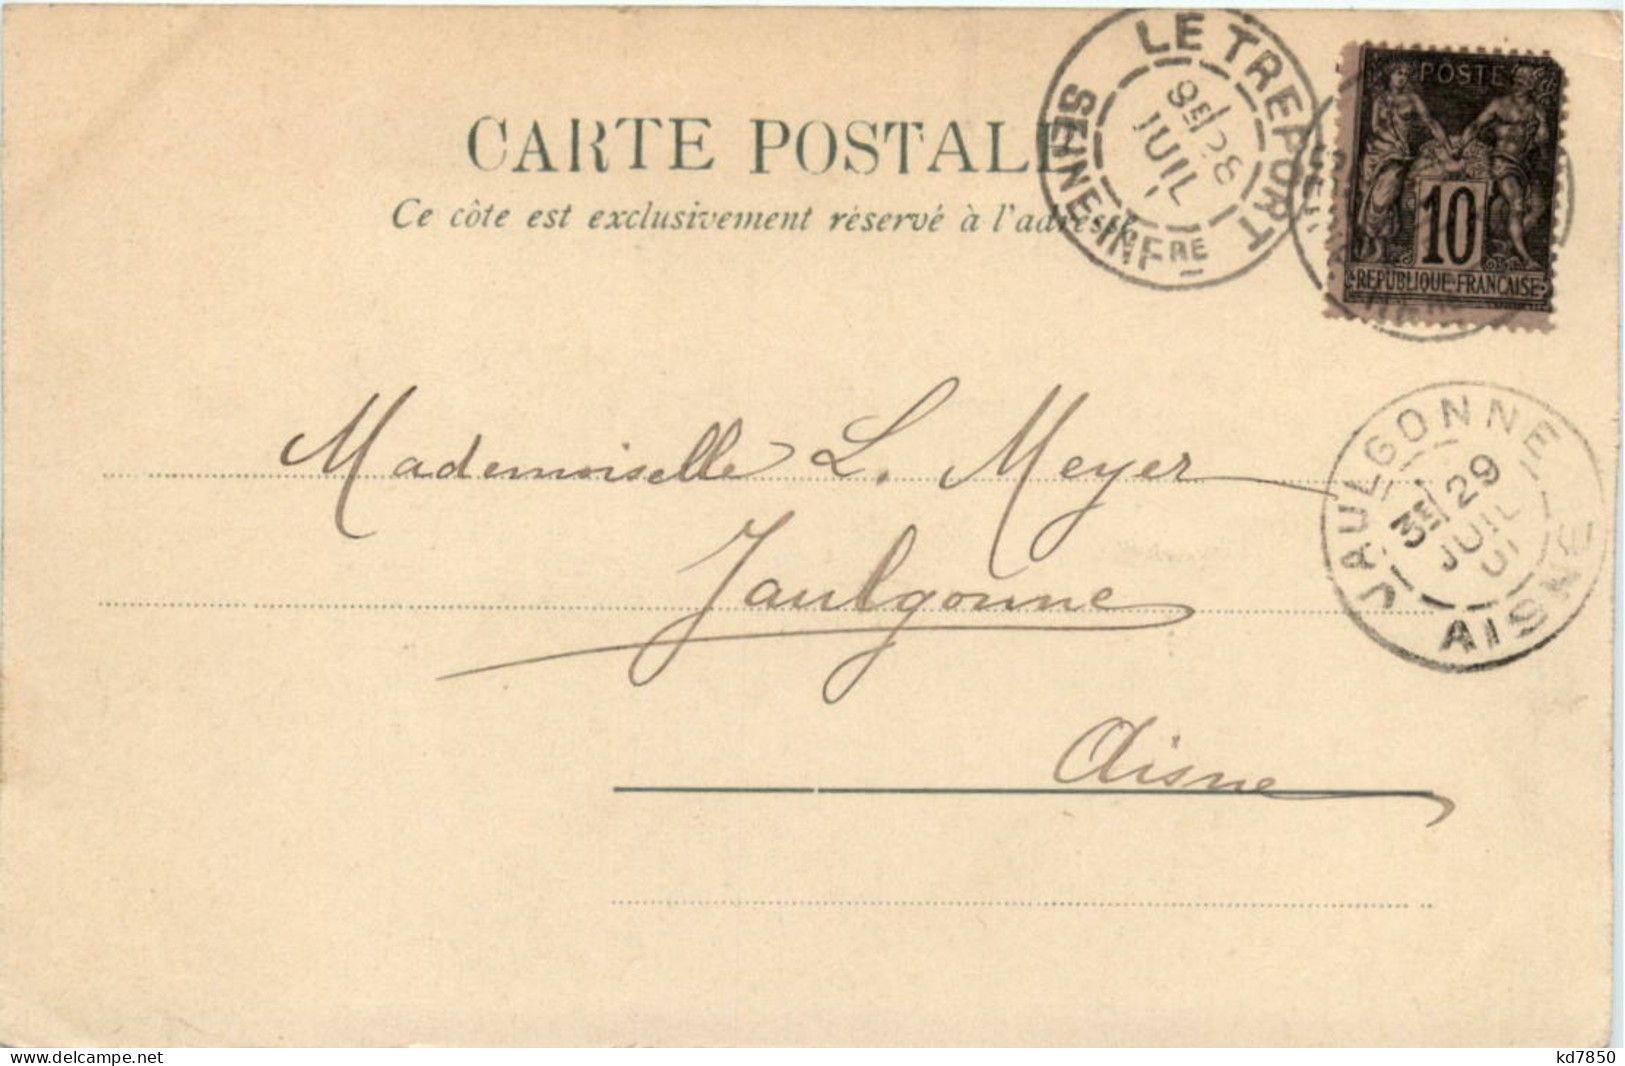 LE TREPORT
SEINE-INFRE
9E 28
JUIL
POSTE
10
REPUBLIQUE FRANCAISE
CARTE POSTALE
Ce côte est exclusivement réservé à l'adresse
Mademoiselle L. Meyer
Jaulgonne
Aisne
JAULGONNE
3E 29
JUIL
01
AISNE
www.delcampe.net
kd7850